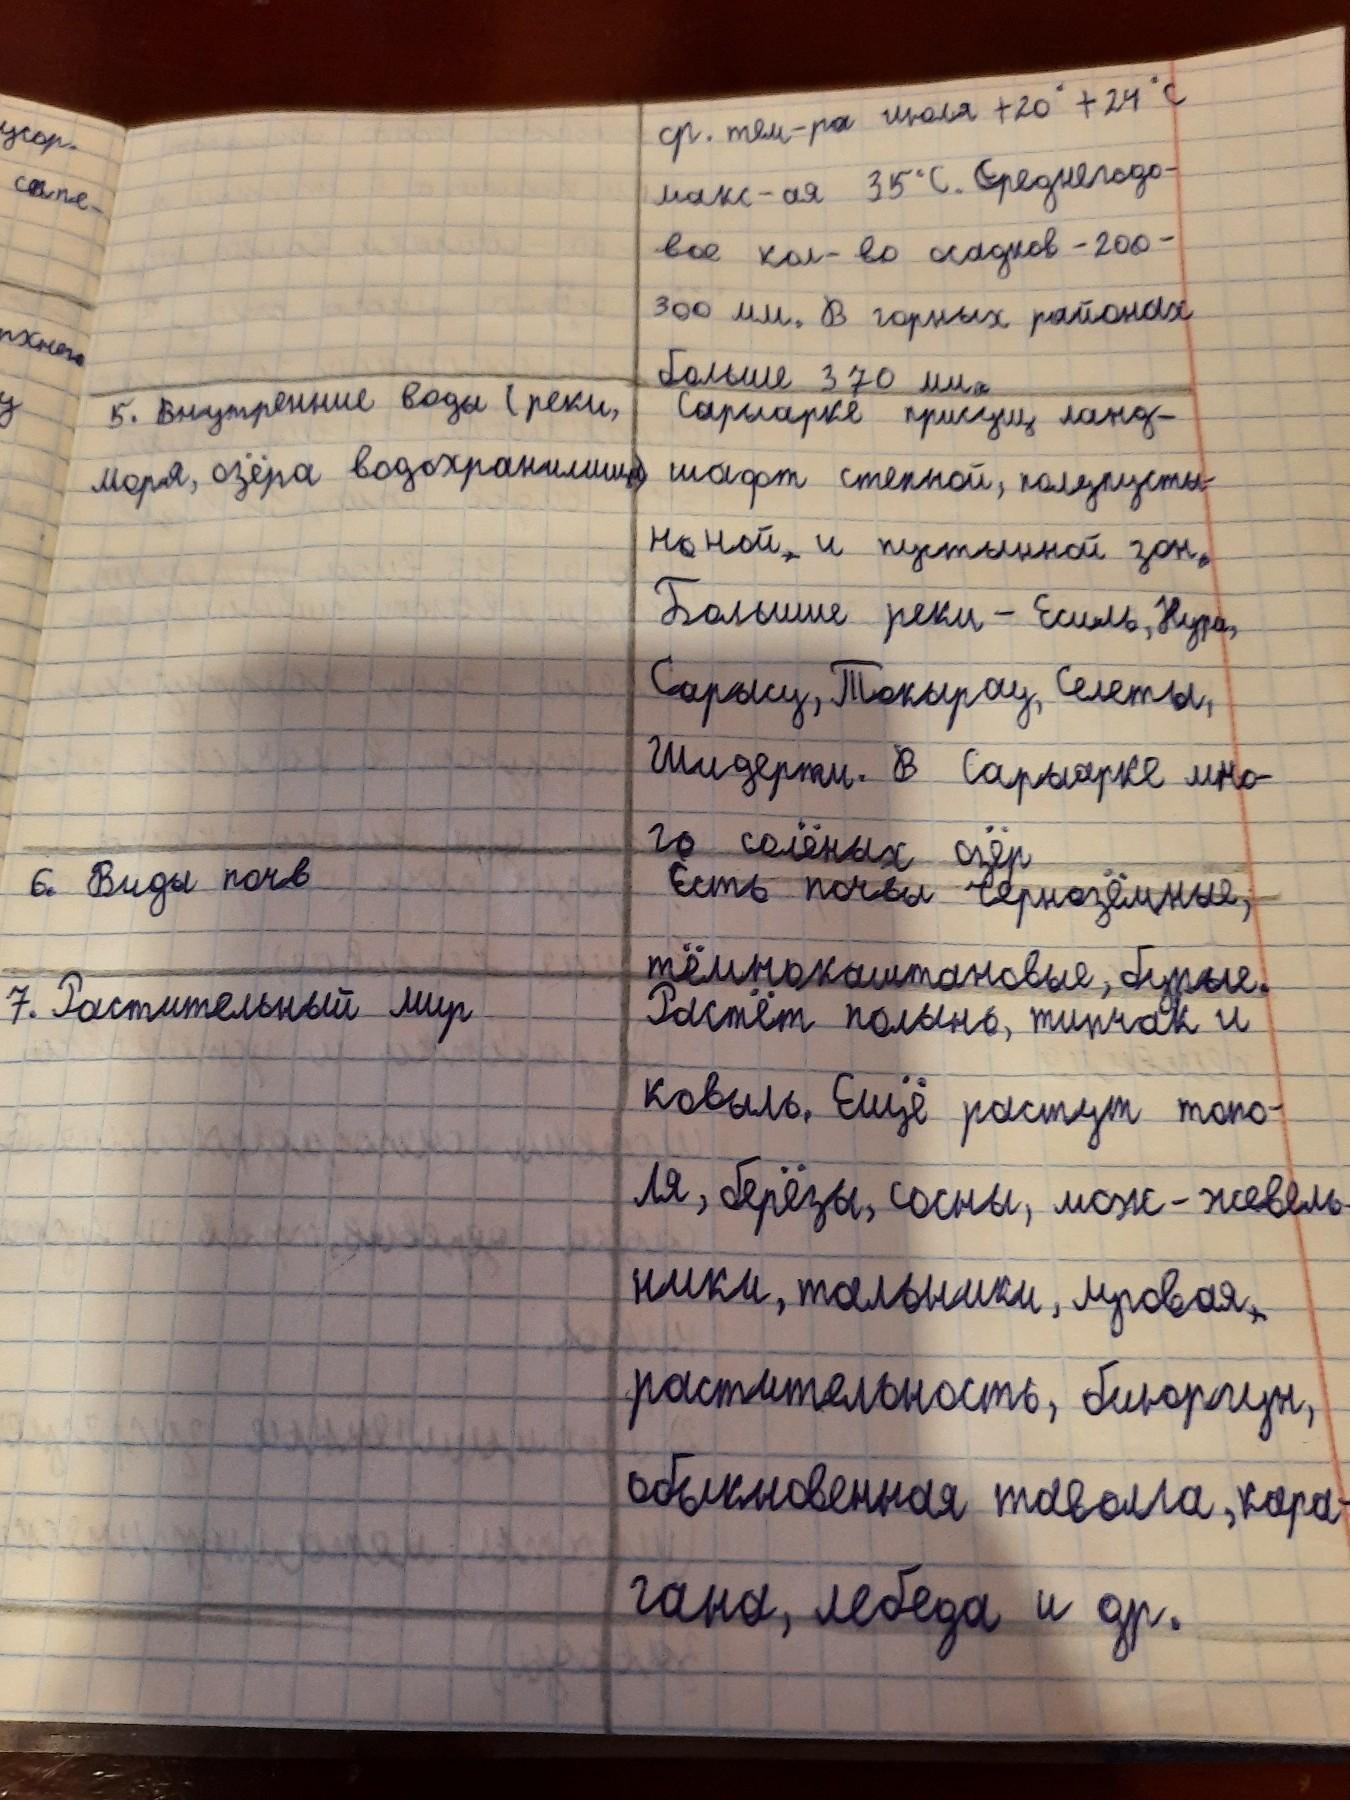 усор.
сопе-
рхнего
у
ср. тем-ра июля +20° +24°С
макс-ая 35°С. Среднегодо-
вое кол-во осадков -200-
300 мм. В горных районах
больше 370 мм.
5. Внутренние воды (реки,
моря, озёра водохранилища)
Сарыарке присущ ланд-
шафт степной, полупусты-
нной, и пустынной зон.
Большие реки - Есиль, Нура,
Сарысу, Токырау, Селеты,
Шидерти. В Сарыарке мно-
го солёных озёр
6. Виды почв
Есть почвы чернозёмные,
тёмнокаштановые, бурые.
7. Растительный мир
Растёт полынь, типчак и
ковыль. Ещё растут топо-
ля, берёзы, сосны, мож-жевель-
ники, тальники, луговая,
растительность, биюргун,
обыкновенная таволга, кара-
гана, лебеда и др.